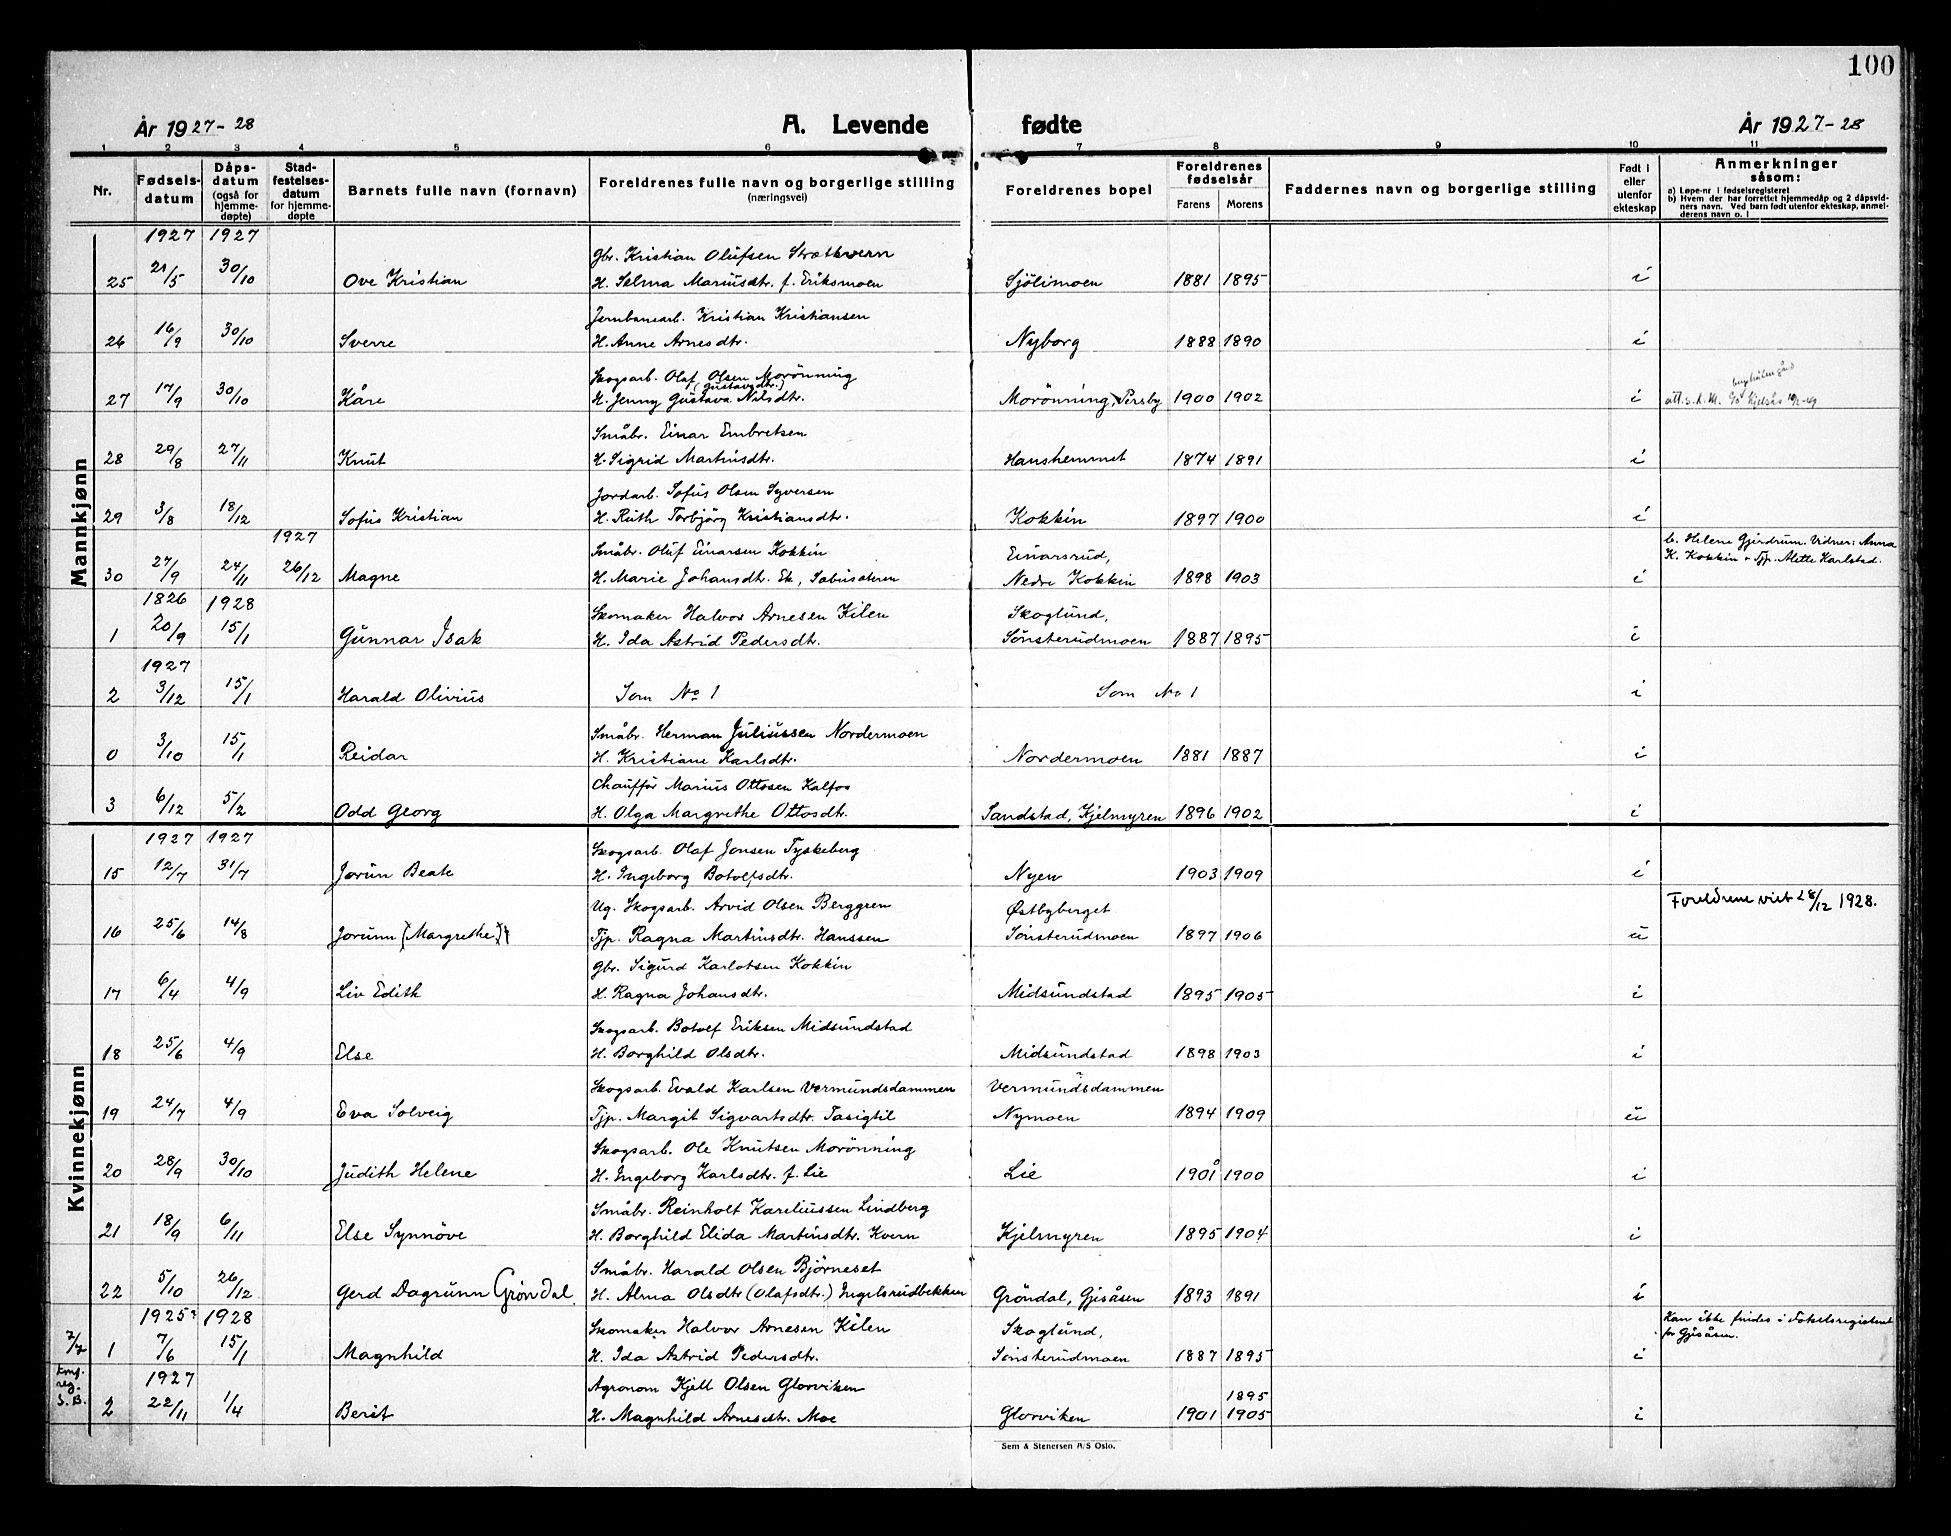 100
År 1927-28 A. Levende fødte År 1927-28
1 2 3 4 5 6 7 8 9 10 11
Nr. Fødselsdatum Dåpsdatum (også for hjemmedøpte) Stadfestelsesdatum for hjemmedøpte Barnets fulle navn (fornavn) Foreldrenes fulle navn og borgerlige stilling (næringsvei) Foreldrenes bopel Foreldrenes fødselsår Farens Morens Faddernes navn og borgerlige stilling Født i eller utenfor ekteskap Anmerkninger såsom:
a) Løpe-nr. i fødselsregisteret
b) Hvem der har forrettet hjemmedåp og 2 dåpsvidners navn. Ved barn født utenfor ekteskap, anmelderens navn o. l
Mannkjønn
1927 1927 Gbr. Kristian Olufsen Strætkvern
25 21/5 30/10 Ove Kristian H. Selma Mariusdtr. f. Eriksmoen Sjölimoen 1881 1895 i
Jernbanearb. Kristian Kristiansen
26 16/9 30/10 Sverre H. Anne Arnesdtr. Nyborg 1888 1890 i
Skogsarb. Olaf Olsen Morönning
(Gustavsdtr.)
27 17/9 30/10 Kåre H. Jenny Gustava Nilsdtr. Morönning, Persby 1900 1902 i att. s. d. M. Kjelsås
Småbr. Einar Embretsen
28 29/8 27/11 Knut H. Sigrid Martinsdtr. Hanshemmet 1874 1891 i
Jordarb. Sofus Olsen Syversen
29 3/8 18/12 Sofus Kristian H. Ruth Torbjörg Kristiansdtr. Kokkin 1897 1900 i
1927 Småbr. Oluf Einarsen Kokkin Einarsrud, b. Helene Gjerdrum. Vidner: Anna
30 27/9 24/11 26/12 Magne H. Marie Johansdtr. Ek, Sabusæteren Nedre Kokkin 1898 1903 i K. Kokkin + Tjp. Alette Karlstad.
1826 1928 Skomaker Halvor Arnesen Kilen Skoglund,
1 20/9 15/1 Gunnar Isak H. Ida Astrid Pedersdtr. Sönsterudmoen 1887 1895 i
1927
2 3/12 15/1 Harald Olivius Som No 1 Som No 1 i
Småbr. Herman Juliussen Nordermoen
0 3/10 15/1 Reidar H. Kristiane Karlsdtr. Nordermoen 1881 1887 i
Chaufför Marius Ottosen Kalfos
3 6/12 5/2 Odd Georg H. Olga Margrethe Ottosdtr. Sandstad, Kjelmyren 1896 1902 i
Kvinnekjønn
1927 1927 Skogsarb. Olaf Jonsen Tyskeberg
15 12/7 31/7 Jorun Beate H. Ingeborg Botolfsdtr. Nyen 1903 1909 i
Ug. Skogsarb. Arvid Olsen Berggren Østbyberget Foreldrene viet 28/12 1928.
16 25/6 14/8 Jorunn (Margrethe) Tjp. Ragna Martinsdtr. Hanssen Sönsterudmoen 1897 1906 u
Gbr. Sigurd Karlotsen Kokkin
17 6/4 4/9 Liv Edith H. Ragna Johansdtr. Midsundstad 1895 1905 i
Skogsarb. Botolf Eriksen Midsundstad
18 25/6 4/9 Else H. Borghild Olsdtr. Midsundstad 1898 1903 i
Skogsarb. Evald Karlsen Vermundsdammen Vermundsdammen
19 24/7 4/9 Eva Solveig Tjp. Margit Sigvartsdtr. Tasigtil Nymoen 1894 1909 u
Skogsarb. Ole Knutsen Morönning
20 28/9 30/10 Judith Helene H. Ingeborg Karlsdtr. f. Lie Lie 1901 1900 i
Småbr. Reinholt Kareliussen Lindberg
21 18/9 6/11 Else Synnöve H. Borghild Elida Martinsdtr. Kvern Kjelmyren 1895 1904 i
Småbr. Harald Olsen Björneset
22 5/10 26/12 Gerd Dagrunn Gröndal. H. Alma Olsdtr (Olafsdtr.) Ingelsrudbekken Gröndal, Gjesåsen 1893 1891 i
1925? 1928 Skomaker Halvor Arnesen Kilen Skoglund, Kan ikke findes i Fødselsregisteret
7/7 1 7/6 15/1 Magnhild H. Ida Astrid Pedersdtr. Sönsterudmoen 1887 1895 i for Gjesåsen.
Konf. reg. S. B.
1927 Agronom Kjell Olsen Glorviken 1895
2 22/11 1/4 Berit H. Magnhild Arnesdtr. Moe Glorviken 1901 1905 i
Sem & Stenersen A/S Oslo.